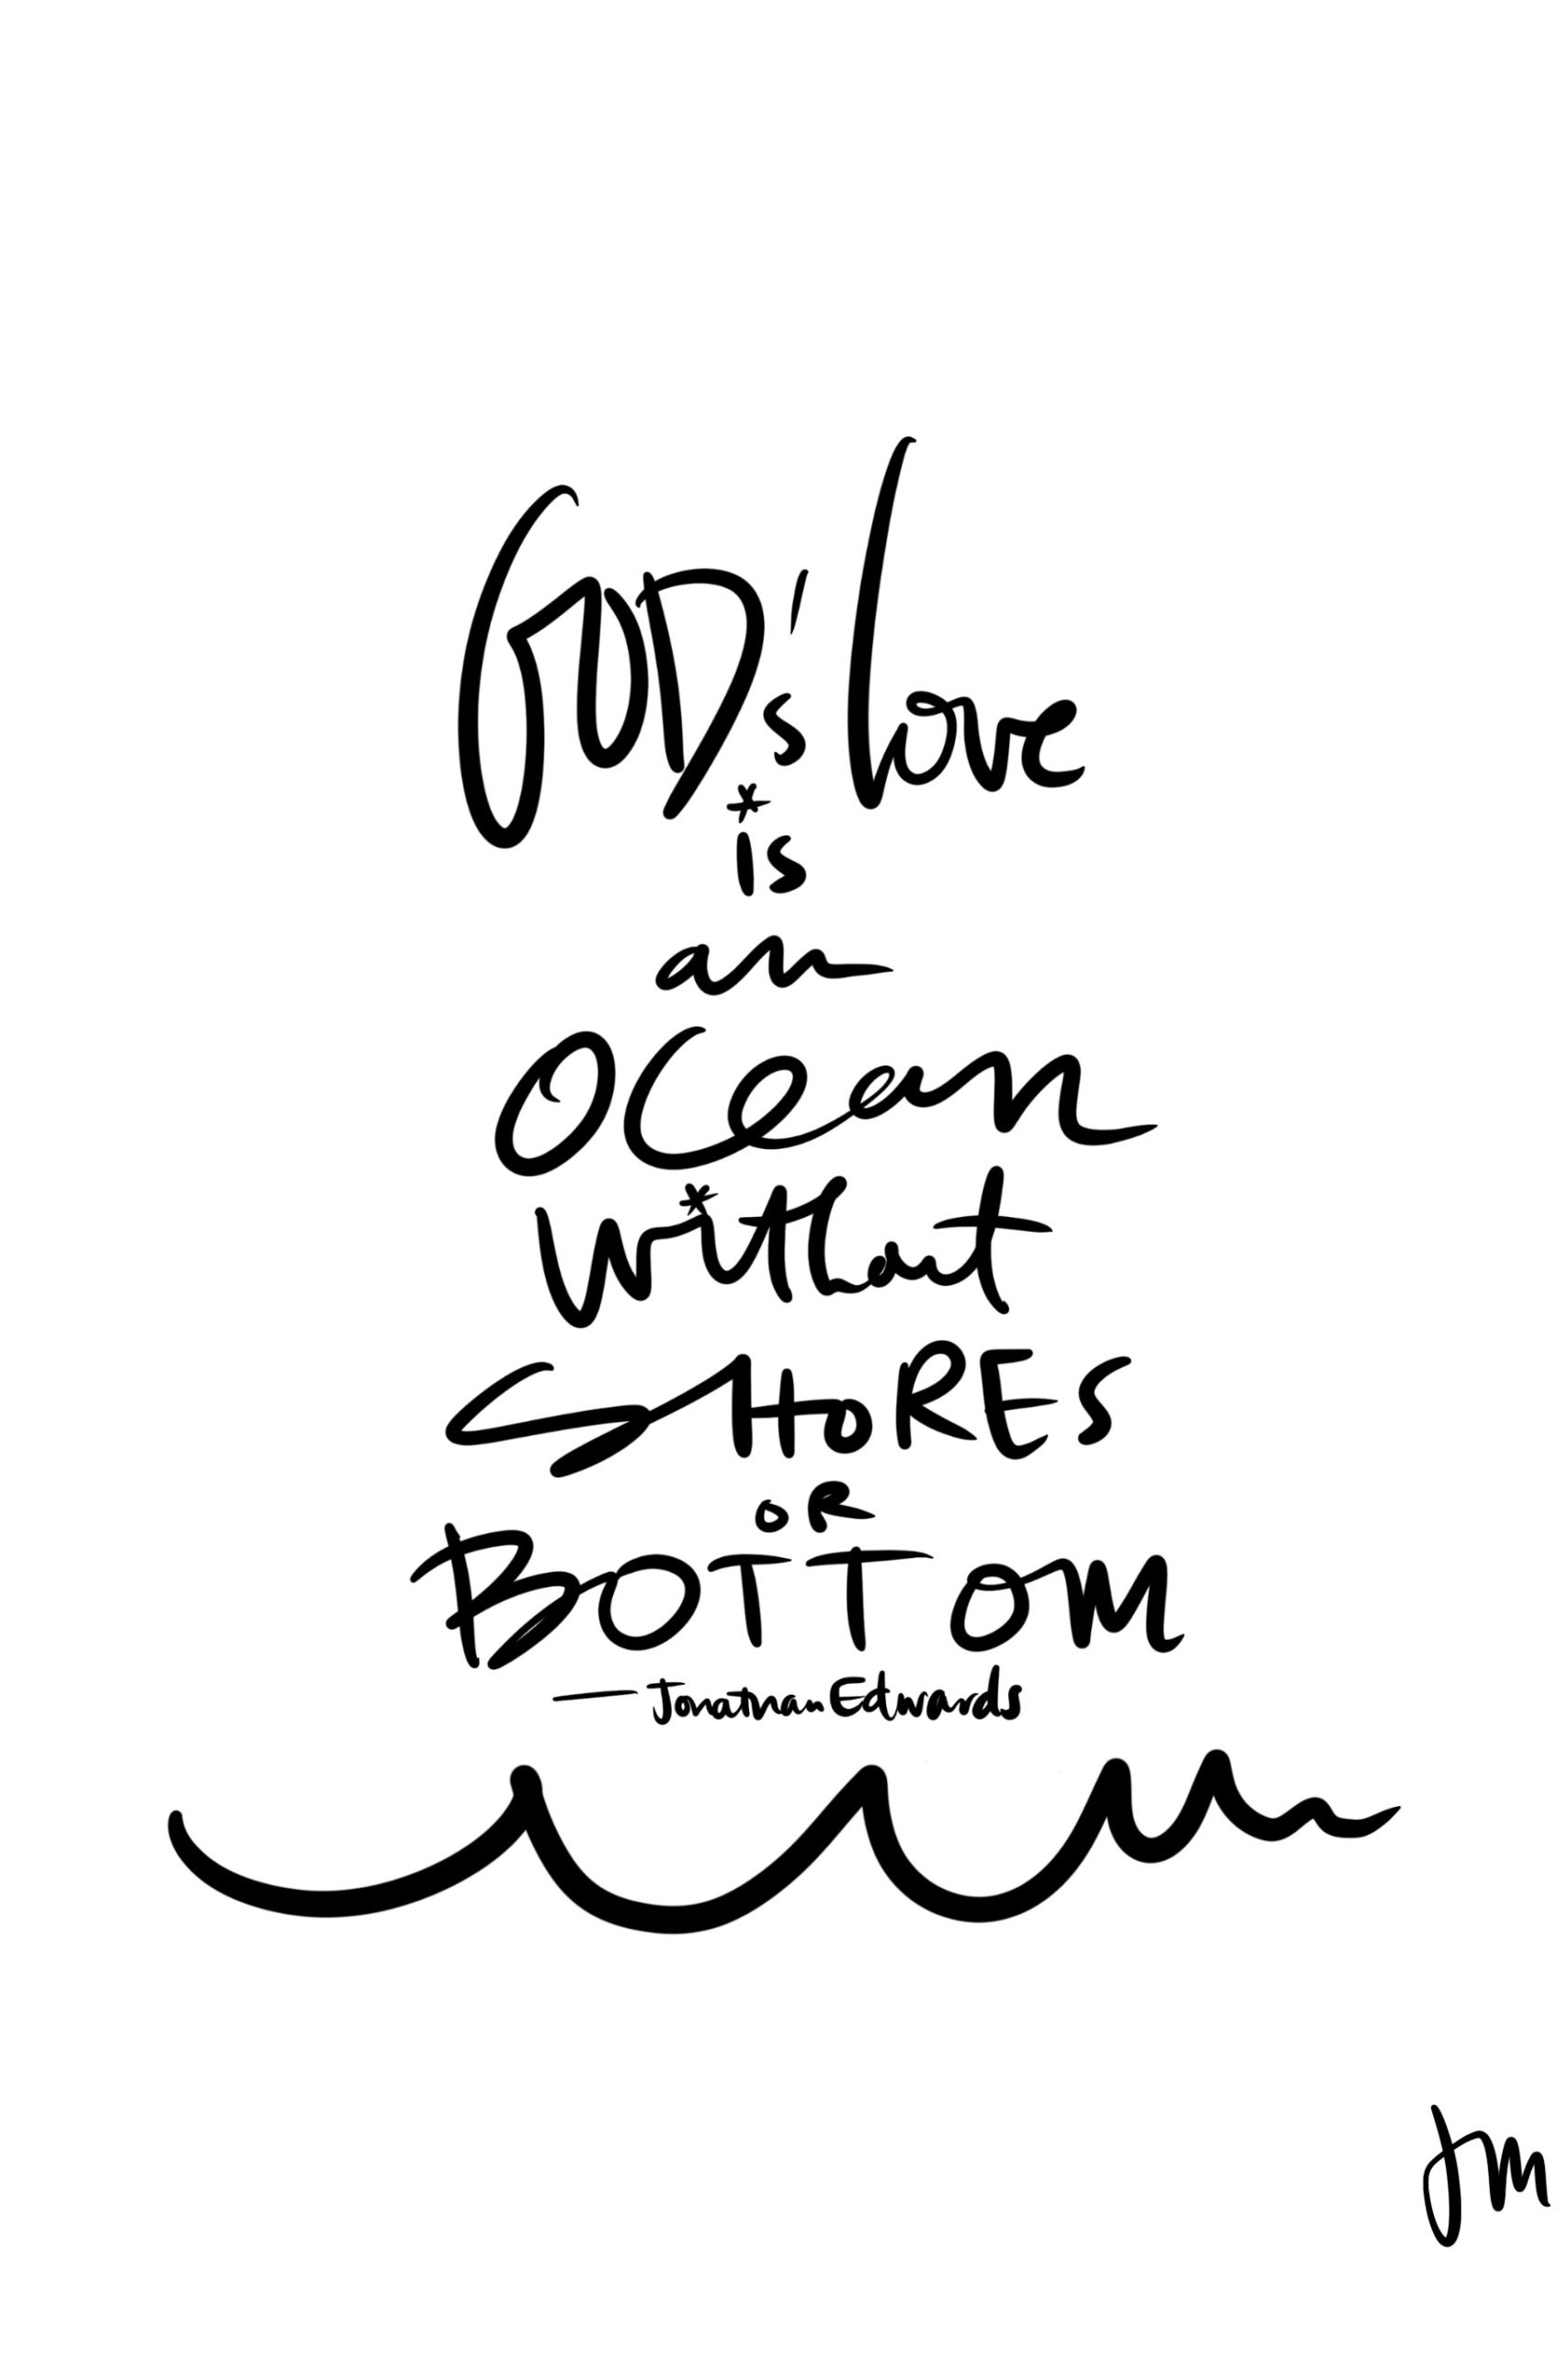 GOD's love
is
an
Ocean
without
SHORES
OR
BOTTOM
— Jonathan Edwards
JM